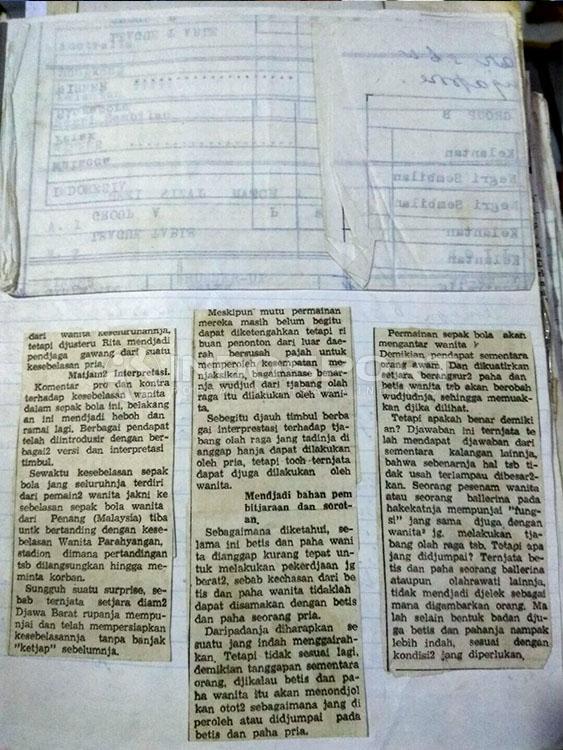 GROUP B
Kelantan
Negri Sembilan
Negri Sembilan
Kelantan
Kelantan
LEAGUE TABLE
dari wanita keseluruhannja,
tetapi djusteru Rita mendjadi
pendjaga gawang dari suatu
kesebelasan pria.
Matjam2 Interpretasi.
Komentar pro dan kontra
terhadap kesebelasan wanita
dalam sepak bola ini, belakang
an ini mendjadi heboh dan
ramai lagi. Berbagai pendapat
telah diintrodusir dengan ber-
bagai2 versi dan interpretasi
timbul.
Sewaktu kesebelasan sepak
bola jang seluruhnja terdiri
dari pemain2 wanita jakni ke
sebelasan sepak bola wanita
dari Penang (Malaysia) tiba
untk bertanding dengan kese-
belasan Wanita Parahyangan,
stadion dimana pertandingan
tsb dilangsungkan hingga me-
minta korban.
Sungguh suatu surprise, se-
bab ternjata setjara diam2
Djawa Barat rupanja mempu-
njai dan telah mempersiapkan
kesebelasannja tanpa banjak
"ketjap" sebelumnja.
Meskipun mutu permainan
mereka masih belum begitu
dapat diketengahkan tetapi ri
buan penonton dari luar dae-
rah bersusah pajah untuk
memperoleh kesempatan me-
njaksikn, bagaimanan benar-
nja wudjud dari tjabang olah
raga itu dilakukan oleh wani-
ta.
Sebegitu djauh timbul berba
gai interprestasi terhadap tja-
bang olah raga jang tadinja di
anggap hanja dapat dilakukan
oleh pria, tetapi toch ternjata
dapat djuga dilakukan oleh
wanita.
Mendjadi bahan pem
bitjaraan dan sorot-
an.
Sebagaimana diketahui, se-
lama ini betis dan paha wani
ta dianggap kurang tepat un-
tuk melakukan pekerdjaan jg
berat2, sebab kechasan dari be
tis dan paha wanita tidaklah
dapat disamakan dengan betis
dan paha seorang pria.
Daripadanja diharapkan se
suatu jang indah menggairah-
kan. Tetapi tidak sesuai lagi,
demikian tanggapan sementara
orang, djikalau betis dan pa-
ha wanita itu akan menondjol
kan otot2 sebagaimana jang di
peroleh atau didjumpai pada
betis dan paha pria.
Permainan sepak bola akan
mengantar wanita ?
Demikian pendapat sementara
orang awam. Dan dikuatirkan
setjara berangsur2 paha dan
betis wanita tsb akan berobah
wudjudnja, sehingga memuak-
kan djika dilihat.
Tetapi apakah benar demiki
an? Djawaban ini ternjata te
lah mendapat djawaban dari
sementara kalangan lainnja,
bahwa sebenarnja hal tsb ti-
dak usah terlampau dibesar2-
kan. Seorang pesenam wanita
atau seorang ballerina pada
hakekatnja mempunjai "fung-
si" jang sama djuga dengan
wanita2 jg. melakukan tja-
bang olah raga tsb. Tetapi apa
jang didjumpai? Ternjata be-
tis dan paha seorang ballerina
ataupun olahrawati lainnja,
tidak mendjadi djelek sebagai
mana digambarkan orang. Ma
lah selain bentuk badan dju-
ga betis dan pahanja nampak
lebih indah, sesuai dengan
kondisi2 jang diperlukan.